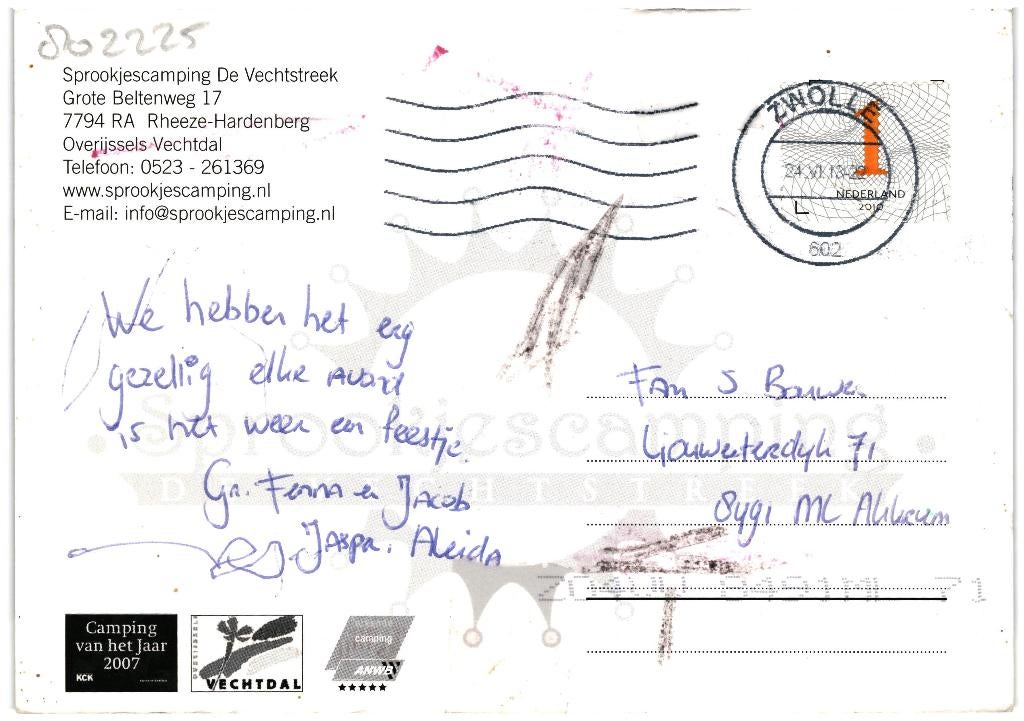 802225
Sprookjescamping De Vechtstreek
Grote Beltenweg 17
7794 RA Rheeze-Hardenberg
Overijssels Vechtdal
Telefoon: 0523 - 261369
www.sprookjescamping.nl
E-mail: info@sprookjescamping.nl
ZWOLLE
1
NEDERLAND
2010
602
We hebben het erg
gezellig elke avond
is het weer een feestje.
Gr. Fenna en Jacob
Jaspa. Aleida
Fam S Bouwer
71
8491 ML Akkrum
Sprookjescamping
DE VECHTSTREEK
8491ML 71
Camping
van het Jaar
2007
KCK
OVERIJSSELS
VECHTDAL
camping
ANWB